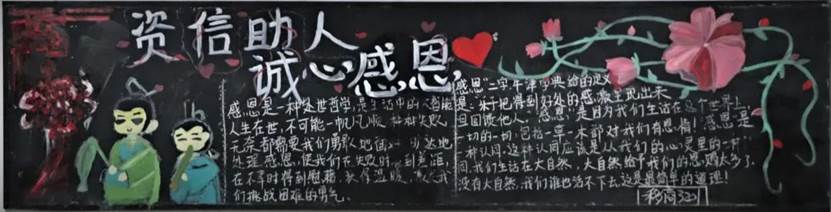 资信助人
诚心感恩
感恩是一种处世哲学,是生活中的大智慧
人生在世,不可能一帆风顺,种种失败、
无奈都需要我们勇敢地面对、旷达地
处理感恩,使我们在失败时看到差距,
在不幸时得到慰藉、获得温暖,激发我
们挑战困难的勇气。
"感恩"二字牛津字典给的定义
是:"乐于把得到好处的感激呈现出来
且回馈他人"感恩"是因为我们生活在这个世界上,
一切的一切,包括一草一木都对我们有恩情!"感恩"是
一种认同,这种认同应该是从我们的心灵里的一种
同,我们生活在大自然,大自然给予我们的恩赐太多了,
没有大自然,我们谁也活不下去这是最简单的道理!